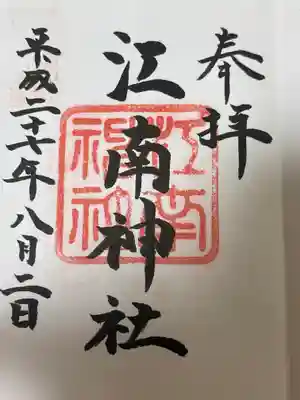 奉拝
江南神社
平成二十七年八月二日